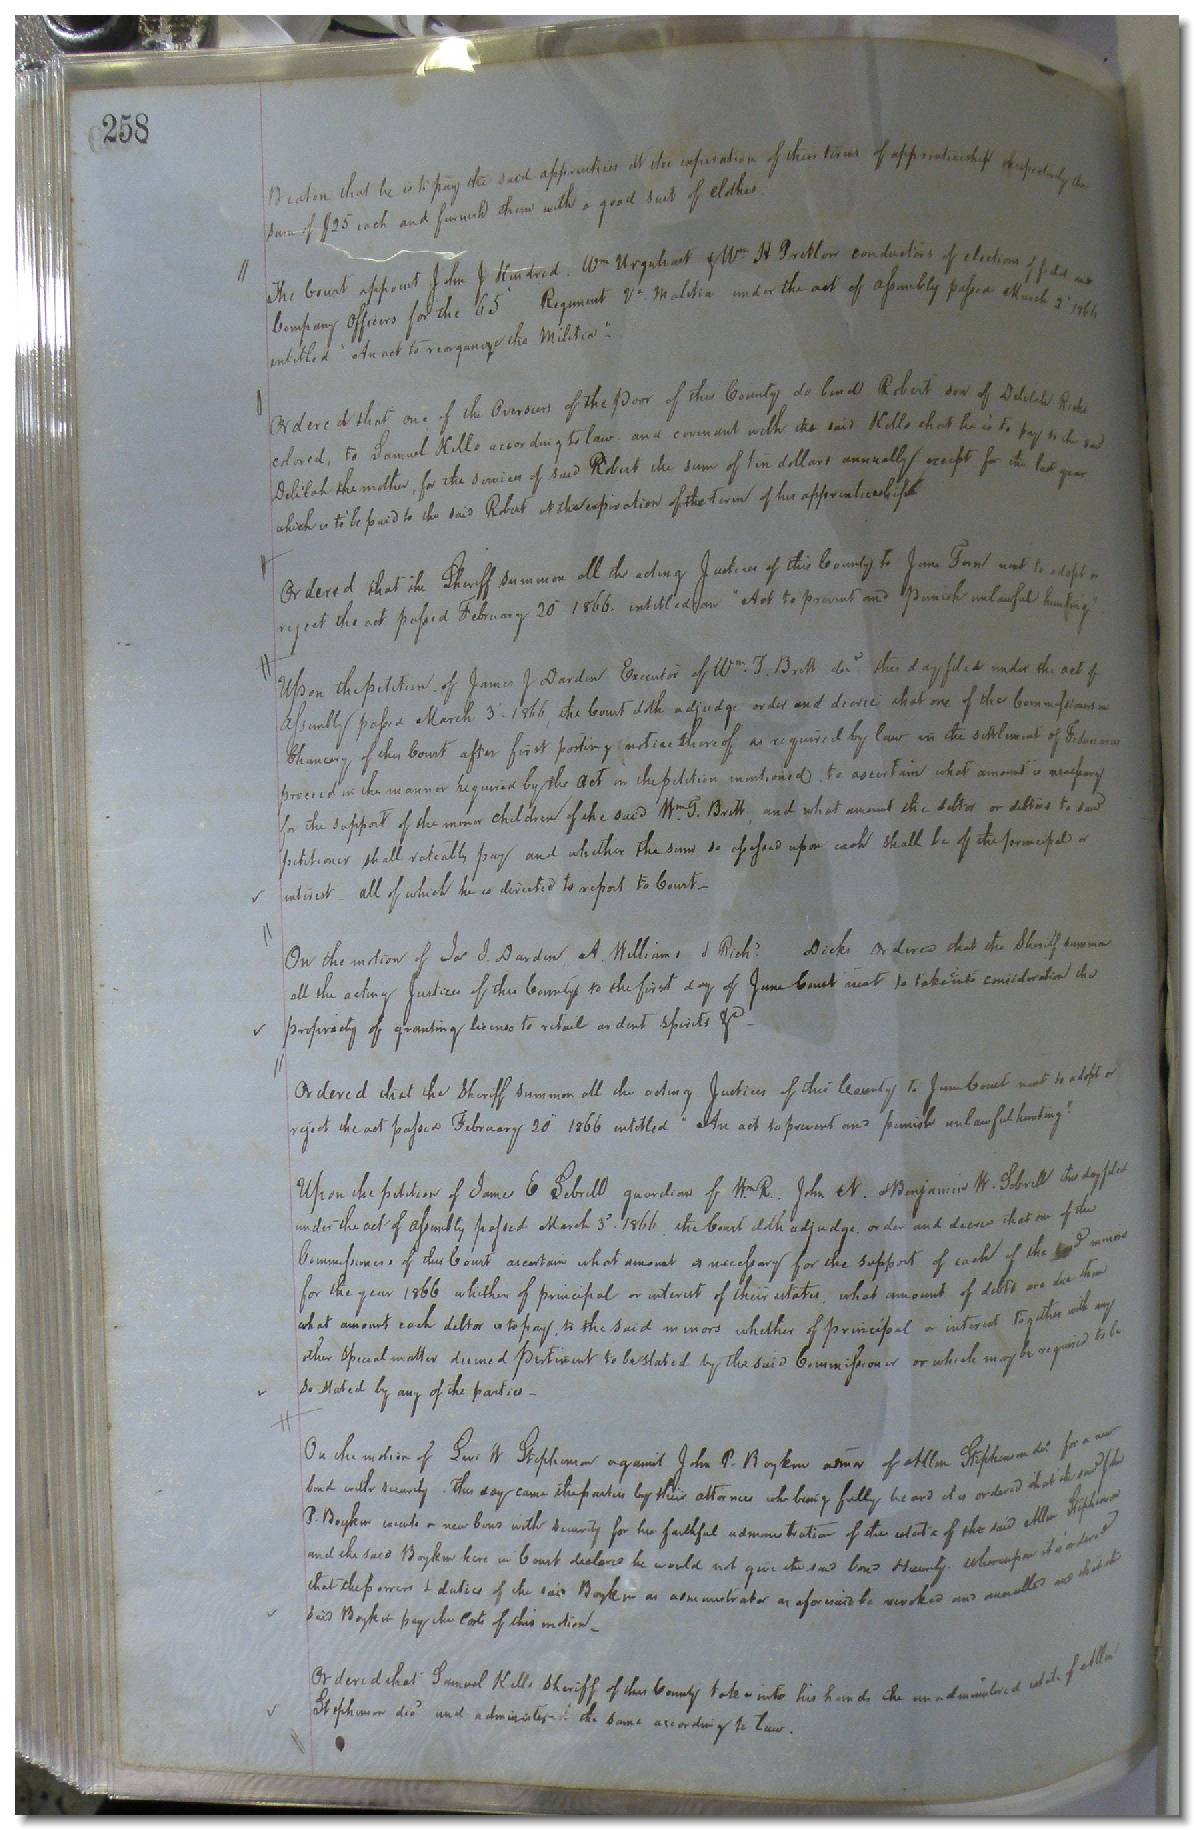 258
Beaton that he is to pay the said apprentices at the expiration of their terms of apprenticeship respectively the
sum of $25 each and furnish them with a good suit of clothes.
The Court appoint John J Kindred, Wm Urquhart & Wm H Pretlow conductors of election of field and
Company Officers for the 65 Regiment Va Malitia under the act of assembly passed March 2d 1866
entitled "An act to reorganize the Militia".
Ordered that one of the Overseers of the Poor of this County do bind Robert son of Delilah Ricks
colored, to Samuel Kello according to law and covenant with the said Kello that he is to pay to the said
Delilah the mother, for the services of said Robert the sum of ten dollars annually except for the last year
which is to be paid to the said Robert at the expiration of the term of his apprenticeship
Ordered that the Sheriff summon all the acting Justices of this County to June Term next to adopt or
reject the act passed February 20 1866 entitled an "Act to prevent and Punish unlawful hunting"
Upon the petition of James J Darden Executor of Wm. T. Britt decd this day filed under the act of
Assembly passed March 3d 1866, the Court doth adjudge order and decree that one of the Commissioners in
Chancery of this Court after first posting notice thereof as required by law in the settlement of Fiduciaries
proceed in the manner required by the act in the petition mentioned, to ascertain what amount is necessary
for the support of the minor children of the said Wm. T. Britt, and what amount the debtor or debtors to said
petitioner shall rateably pay and whether the sum so assessed upon each shall be of the principal or
interest all of which he is directed to report to Court
On the motion of Jas J. Darden, A. Williams & Richd Dicks ordered that the Sheriff summon
all the acting Justices of this County to the first day of June Court next to take into consideration the
propriety of granting license to retail ardent spirits &c
Ordered that the Sheriff summon all the acting Justices of this County to June Court next to adopt or
reject the act passed February 20 1866 entitled "An act to prevent and punish unlawful hunting"
Upon the petition of James E Sebrell guardian of Wm R. John N. & Benjamin W. Sebrell this day filed
under the act of Assembly passed March 3d 1866, the Court doth adjudge, order and decree that one of the
Commissioners of this Court ascertain what amount is necessary for the support of each of the said minors
for the year 1866 whether of principal or interest of their estates, what amount of debts are due them
what amount each debtor is to pay to the said minors whether of principal or interest together with any
other special matter deemed pertinent to be stated by the said Commissioner or which may be required to be
so stated by any of the parties
On the motion of Levi W Stephenson against John P. Boykin admor of Allen Stephenson decd for a new
bond with security. This day came the parties by their attornies who being fully heard it is ordered that the said John
P. Boykin execute a new bond with security for his faithful administration of the estate of the said Allen Stephenson
and the said Boykin here in Court declares he would not give the said bond & security. Whereupon it is ordered
that the powers & duties of the said Boykin as administrator as aforesaid be revoked and annulled and that the
said Boykin pay the Costs of this motion
Ordered that Samuel Kello Sheriff of this County take into his hands the unadministered estate of Allen
Stephenson decd and administer the same according to law.